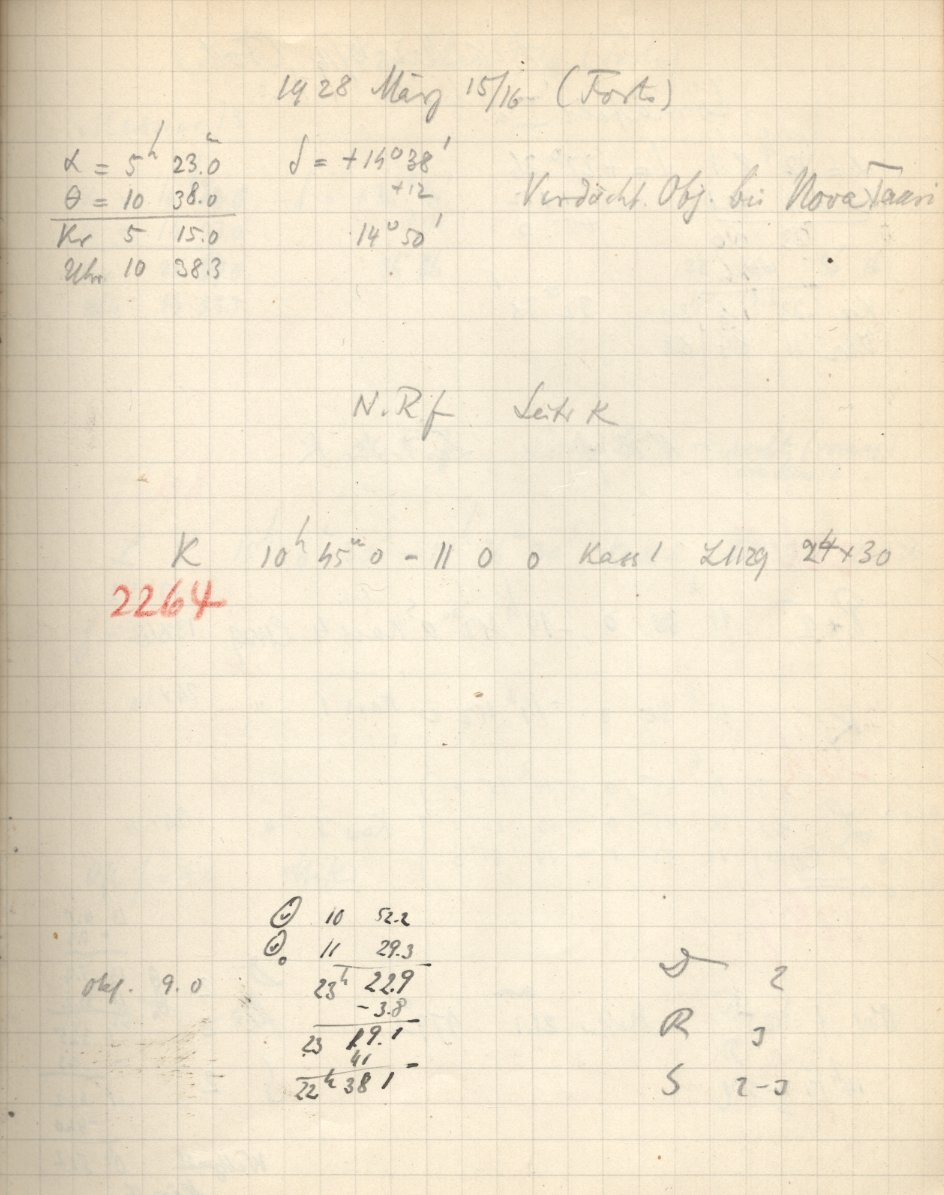 1928 März 15/16 (Forts)
α = 5h 23.0 δ = +14°38'
θ = 10 38.0 +12 Verdächt. Obj. bei Nova Tauri
Kr 5 15.0 14°50'
Uhr 10 38.3
N.Rf Leitr K
K 10h 45m 0 - 11 0 0 Kass 1 24×30
2264
10 52.2
11 29.3
Obj. 9.0 23h 22.9 D 2
- 3.8
23 19.1 R 3
41
22h 38 1 S 2-3